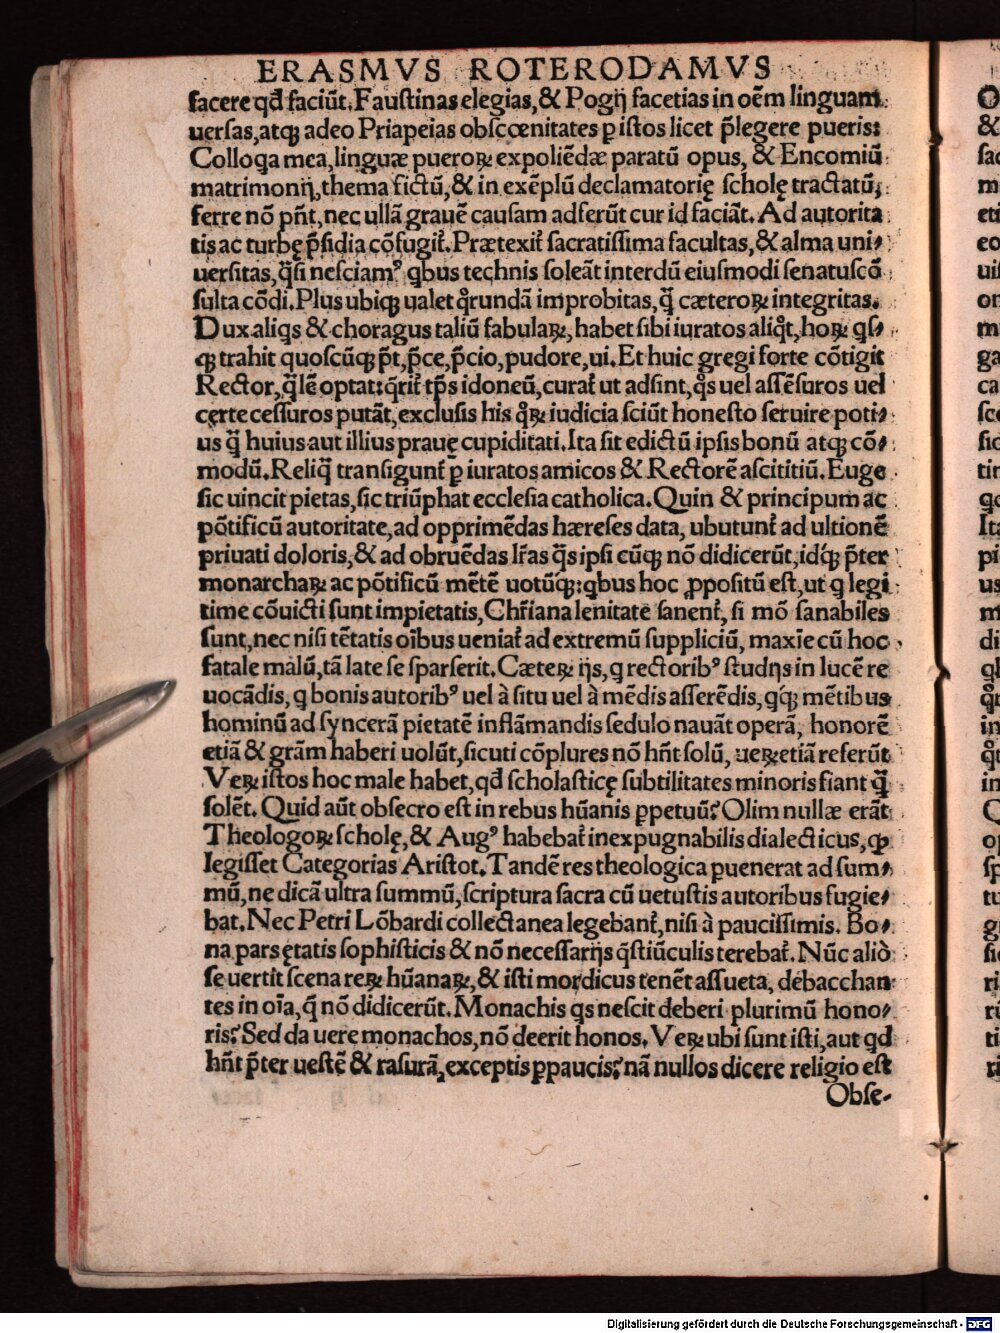 ERASMVS ROTERODAMVS
facere qđ faciūt. Faustinas elegias, & Pogij facetias in oēm linguam
uersas, atqꝫ adeo Priapeias obscœnitates p̲ istos licet p̄legere pueris:
Colloq̄a mea, linguæ pueroꝝ expoliēdæ paratū opus, & Encomiū
matrimonij, thema fictū, & in exēplū declamatorię scholę tractatū,
ferre nō pn̄t, nec ullā grauē causam adferūt cur id faciāt. Ad autorita
tis ac turbę p̄sidia cōfugit᷑. Prætexit᷑ sacratissima facultas, & alma uni⸗
uersitas, q̄si nesciamꝰ qbus technis soleāt interdū eiusmodi senatuscō
sulta cōdi. Plus ubiqꝫ ualet qͦrundā improbitas, q̄ cæteroꝝ integritas.
Dux aliqs & choragus taliū fabulaꝝ, habet sibi iuratos aliqͦt, hoꝝ qs⸗
qꝫ trahit quoscūqꝫ p̄t, p̄ce, p̄cio, pudore, ui. Et huic gregi forte cōtigit
Rector, q̄lē optat: q̄rit᷑ tp̄s idoneū, curat᷑ ut adsint, qͦs uel assēsuros uel
certe cessuros putāt, exclusis his qͦꝝ iudicia sciūt honesto seruire poti⸗
us q̄ huius aut illius prauę cupiditati. Ita fit edictū ipsis bonū atqꝫ cō⸗
modū. Reliq̄ transigunt᷑ p̲ iuratos amicos & Rectorē ascititiū. Euge
sic uincit pietas, sic triūphat ecclesia catholica. Quin & principum ac
pōtificū autoritate, ad opprimēdas hæreses data, ubutunt᷑ ad ultionē
priuati doloris, & ad obruēdas lr̄as q̄s ipsi cūqꝫ nō didicerūt, idq́ꝫ p̄ter
monarchaꝝ ac pōtificū mētē uotūqꝫ: qbus hoc ꝓpositū est, ut q legi
time cōuicti sunt impietatis, Chr̄iana lenitate sanent᷑, si mō sanabiles
sunt, nec nisi tētatis oībus ueniat᷑ ad extremū suppliciū, maxīe cū hoc
fatale malū, tā late se sparserit. Cæteꝝ ijs, q rectoribꝰ studijs in lucē re
uocādis, q bonis autoribꝰ uel à situ uel à mēdis asserēdis, qq́ꝫ mētibus
hominū ad syncerā pietatē inflāmandis sedulo nauāt operā, honorē
etiā & grām haberi uolūt, sicuti cōplures nō hn̄t solū, ueꝝ etiā referūt
Veꝝ istos hoc male habet, qđ scholasticę subtilitates minoris fiant q̄
solēt. Quid aūt obsecro est in rebus hūanis p̲petuū? Olim nullæ erāt
Theologoꝝ scholę, & Augꝰ habebat᷑ inexpugnabilis dialecticus, ꝙ
legisset Categorias Aristot. Tandē res theologica puenerat ad sum⸗
mū, ne dicā ultra summū, scriptura sacra cū uetustis autoribus fugie⸗
bat. Nec Petri Lōbardi collectanea legebant᷑, nisi à paucissimis. Bo⸗
na pars ętatis sophisticis & nō necessarijs q̄stiūculis terebat᷑. Nūc aliò
se uertit scena reꝝ hūanaꝝ, & isti mordicus tenēt assueta, debacchan
tes in oīa, q̄ nō didicerūt. Monachis qs nescit deberi plurimū hono⸗
ris? Sed da uere monachos, nō deerit honos. Veꝝ ubi sunt isti, aut qd
hn̄t p̄ter uestē & rasurā, exceptis p̲paucis? nā nullos dicere religio est
Obse-
Digitalisierung gefördert durch die Deutsche Forschungsgemeinschaft - DFG